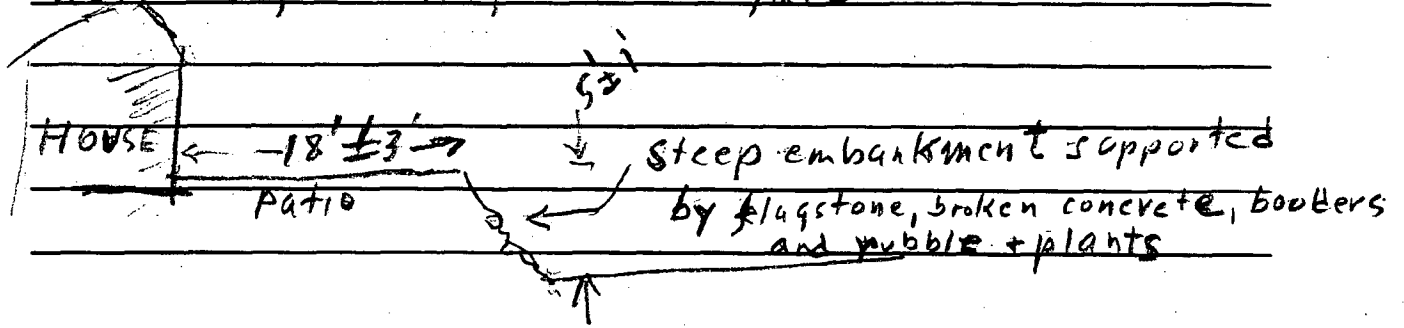 5±'
HOUSE ← 18' ±3' → steep embankment supported
patio by flagstone, broken concrete, boolders
and rubble + plants